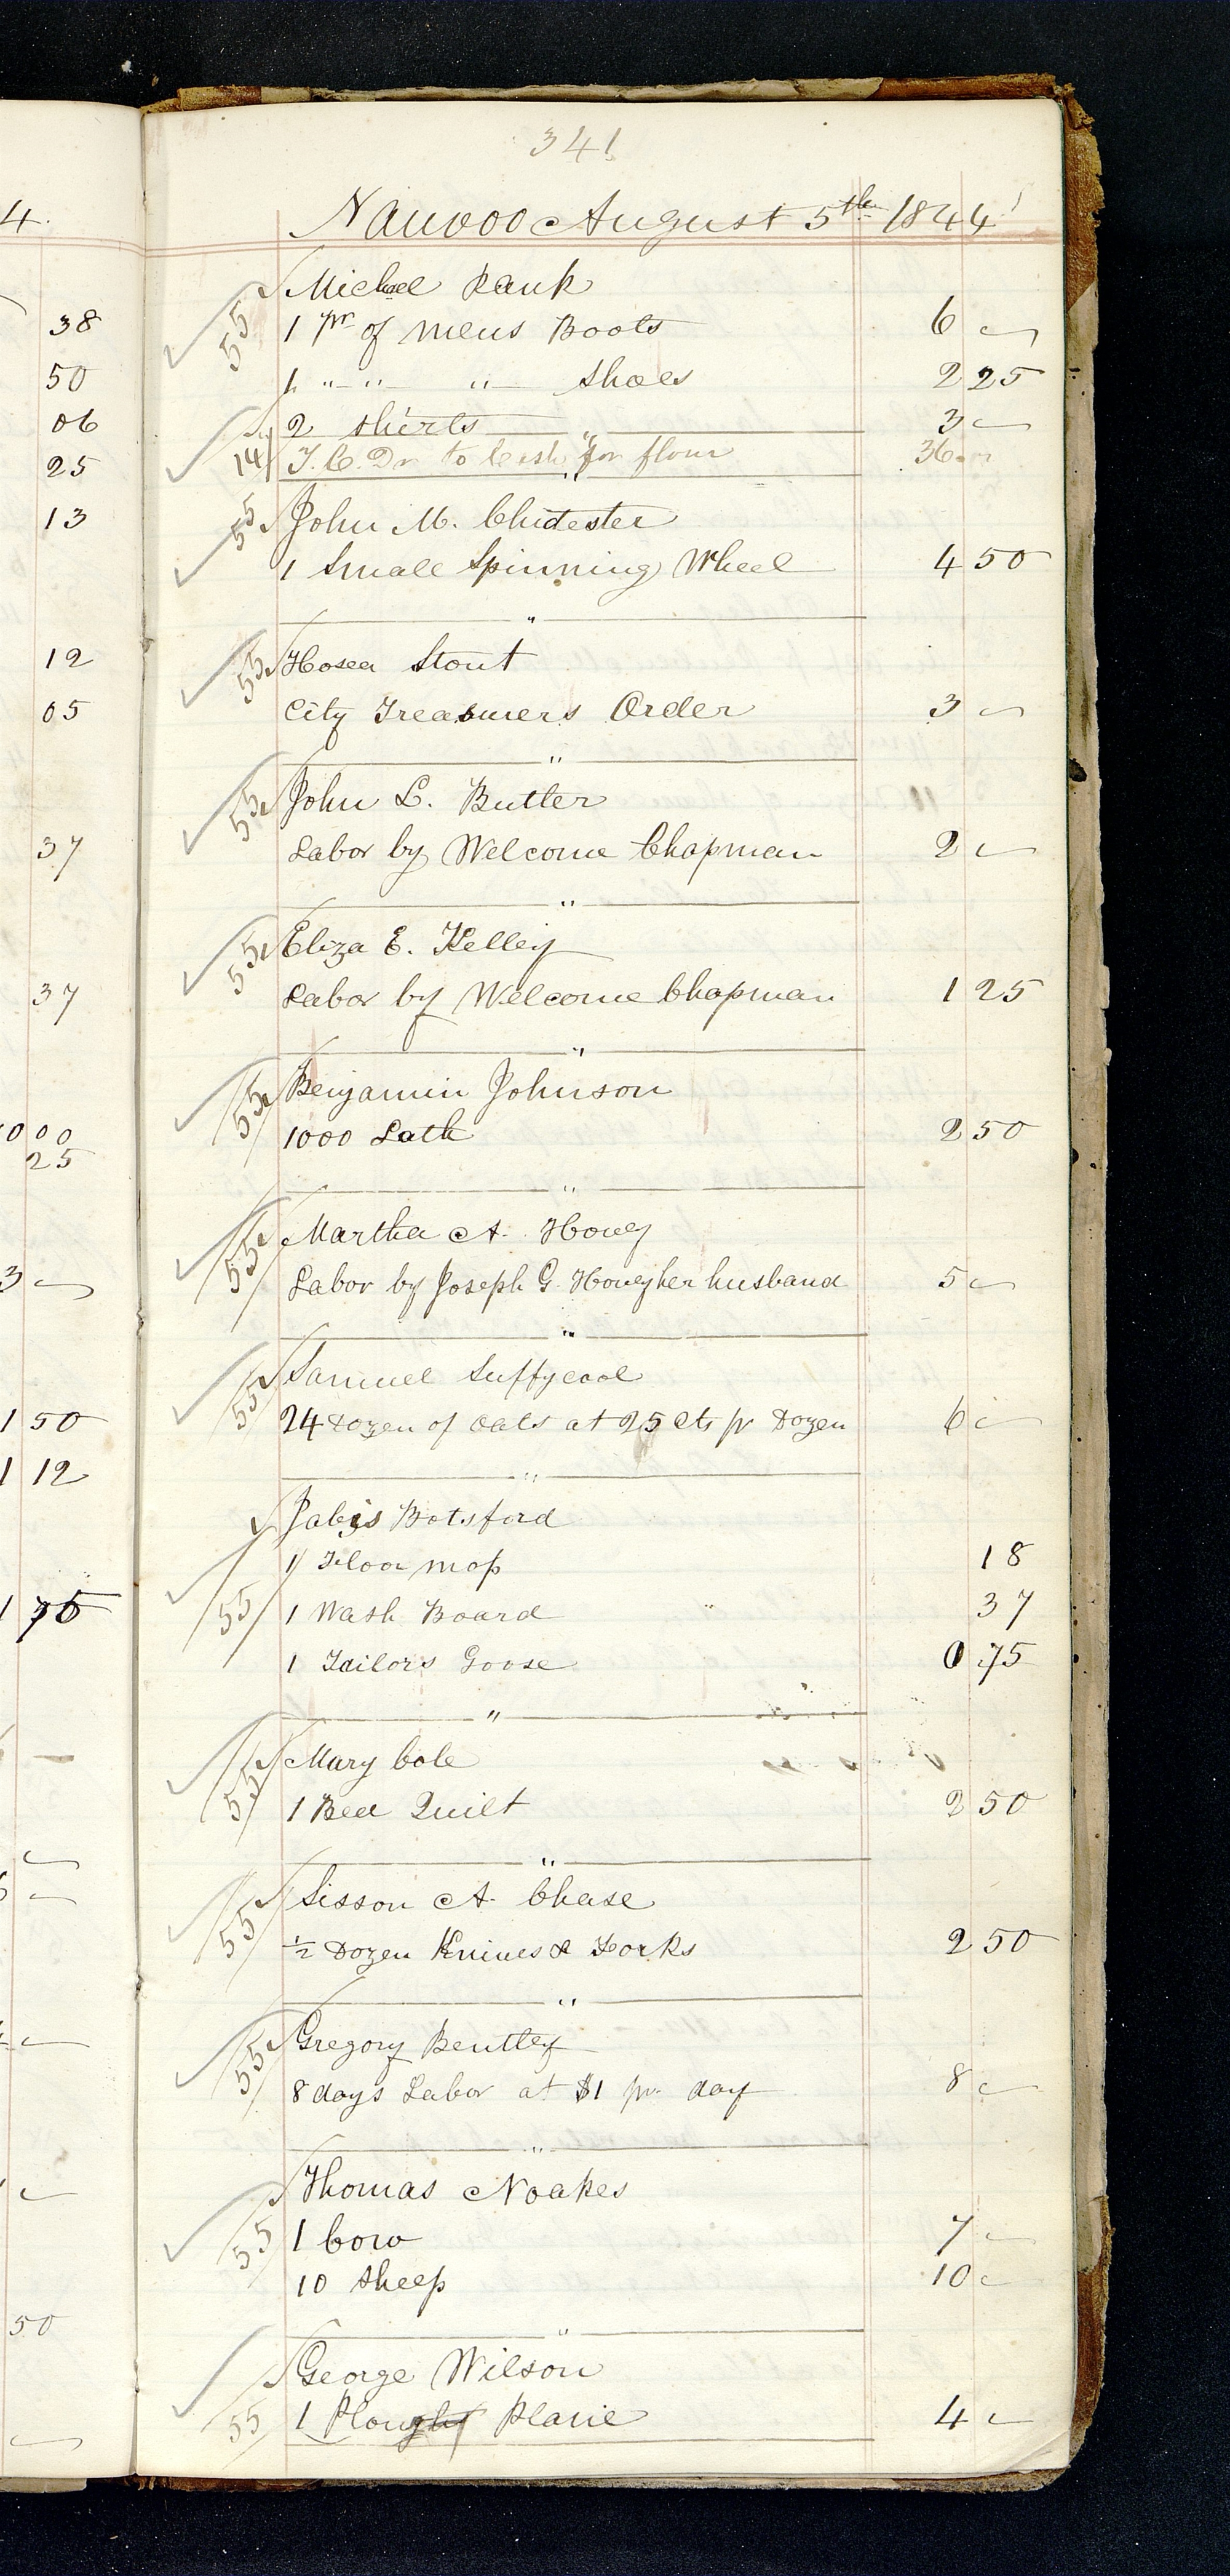 341
4.
Nauvoo August 5th 1844
Michael Rauk
38
55 1 pr of mens Boots 6 "
50
1 " " " shoes 2 25
06
2 shirts 3 "
25
14 T. C. Dr to Cash for flour 36
13
55 John M. Chidester
1 Small Spinning Wheel 4 50
"
12
55 Hosea Stout
05
City Treasurers Order 3 "
"
55 John L. Butler
37
Labor by Welcome Chapman 2 "
"
55 Eliza E. Kelley
37
Labor by Welcome Chapman 1 25
"
55 Benjamin Johnson
00 00
1000 Lath 2 50
25
"
55 Martha A. Hovey
3
Labor by Joseph G. Hovey her husband 5 "
"
55 Samuel Suffycool
1 50
24 Dozen of Oats at 25 Cts pr Dozen 6 "
1 12
"
Jabis Botsford
1 Floor mop 18
1 75
55 1 Wash Board 37
1 Tailors Goose 0 75
"
Mary Cole
55 1 Bed Quilt 2 50
"
Sisson A. Chase
55 ½ Dozen Knives & Forks 2 50
"
55 Gregory Bentley
8 days Labor at $1 pr day 8 "
"
Thomas Noakes
55 1 Cow 7 "
10 Sheep 10 "
50
"
George Wilson
55 1 Plough Plane 4 "